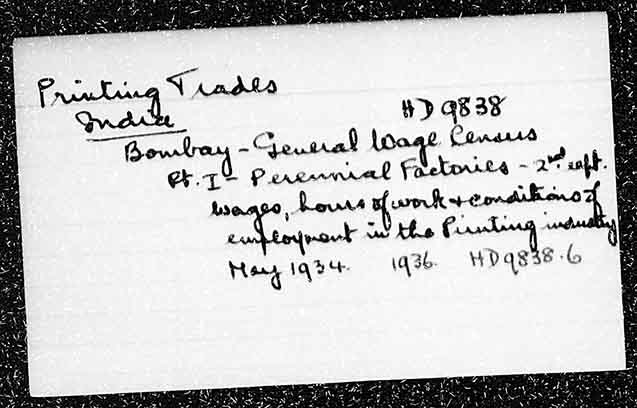 Printing Trades
India
HD 9838
Bombay - General Wage Census
Pt. I - Perennial Factories - 2nd rept.
Wages, hours of work + conditions of
employment in the Printing industry
May 1934. 1936. HD9838.6